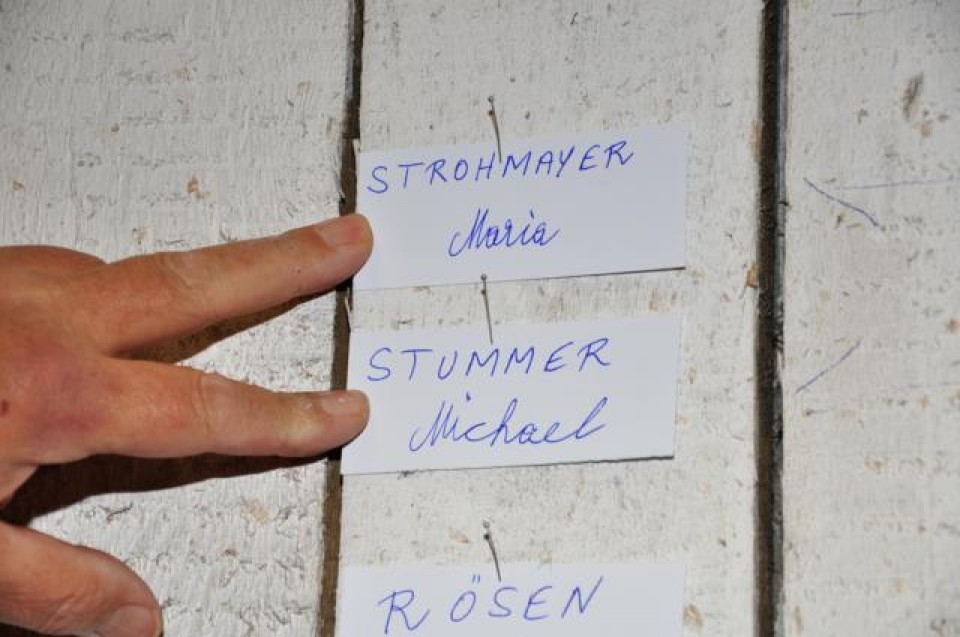 STROHMAYER
Maria
STUMMER
Michael
RÖSEN